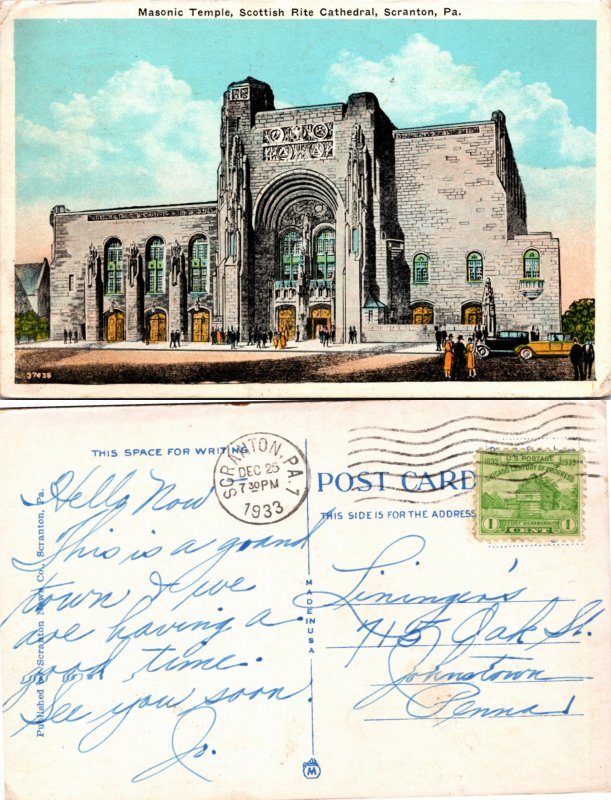 Masonic Temple, Scottish Rite Cathedral, Scranton, Pa.
37438
THIS SPACE FOR WRITING
SCRANTON, PA. 1
DEC 25
7 30 PM
1933
POST CARD
THIS SIDE IS FOR THE ADDRESS
U.S. POSTAGE
1833 A CENTURY OF PROGRESS 1933
FORT DEARBORN
1 CENT 1
Published by Scranton News Co., Scranton, Pa.
MADE IN USA
Hello Now
This is a grand
town & we
are having a
good time.
See you soon.
Jo.
Lininger's
715 Oak St.
Johnstown
Penna
M